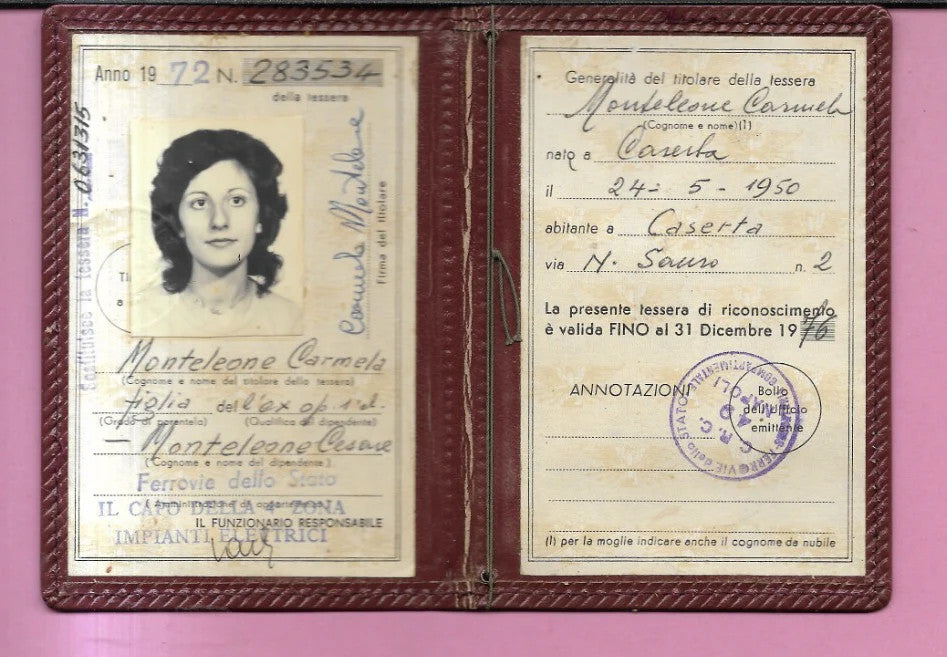 Anno 19 72 N. 283534
della tessera
Costituisce la tessera N. 0631315
Carmela Monteleone
Firma del titolare
Monteleone Carmela
(Cognome e nome del titolare della tessera)
figlia dell'ex op.
(Grado di parentela) (Qualifica del dipendente)
Monteleone Cesare
(Cognome e nome del dipendente)
Ferrovie dello Stato
(Amministrazione di appartenenza)
IL CAPO DELLA 4ª ZONA
IL FUNZIONARIO RESPONSABILE
IMPIANTI ELETTRICI
Generalità del titolare della tessera
Monteleone Carmela
(Cognome e nome)(1)
nato a Caserta
il 24 - 5 - 1950
abitante a Caserta
via N. Sauro n. 2
La presente tessera di riconoscimento
è valida FINO al 31 Dicembre 19 76
ANNOTAZIONI
Bollo
dell'Ufficio
emittente
FERROVIE dello STATO
NAPOLI
(1) per la moglie indicare anche il cognome da nubile